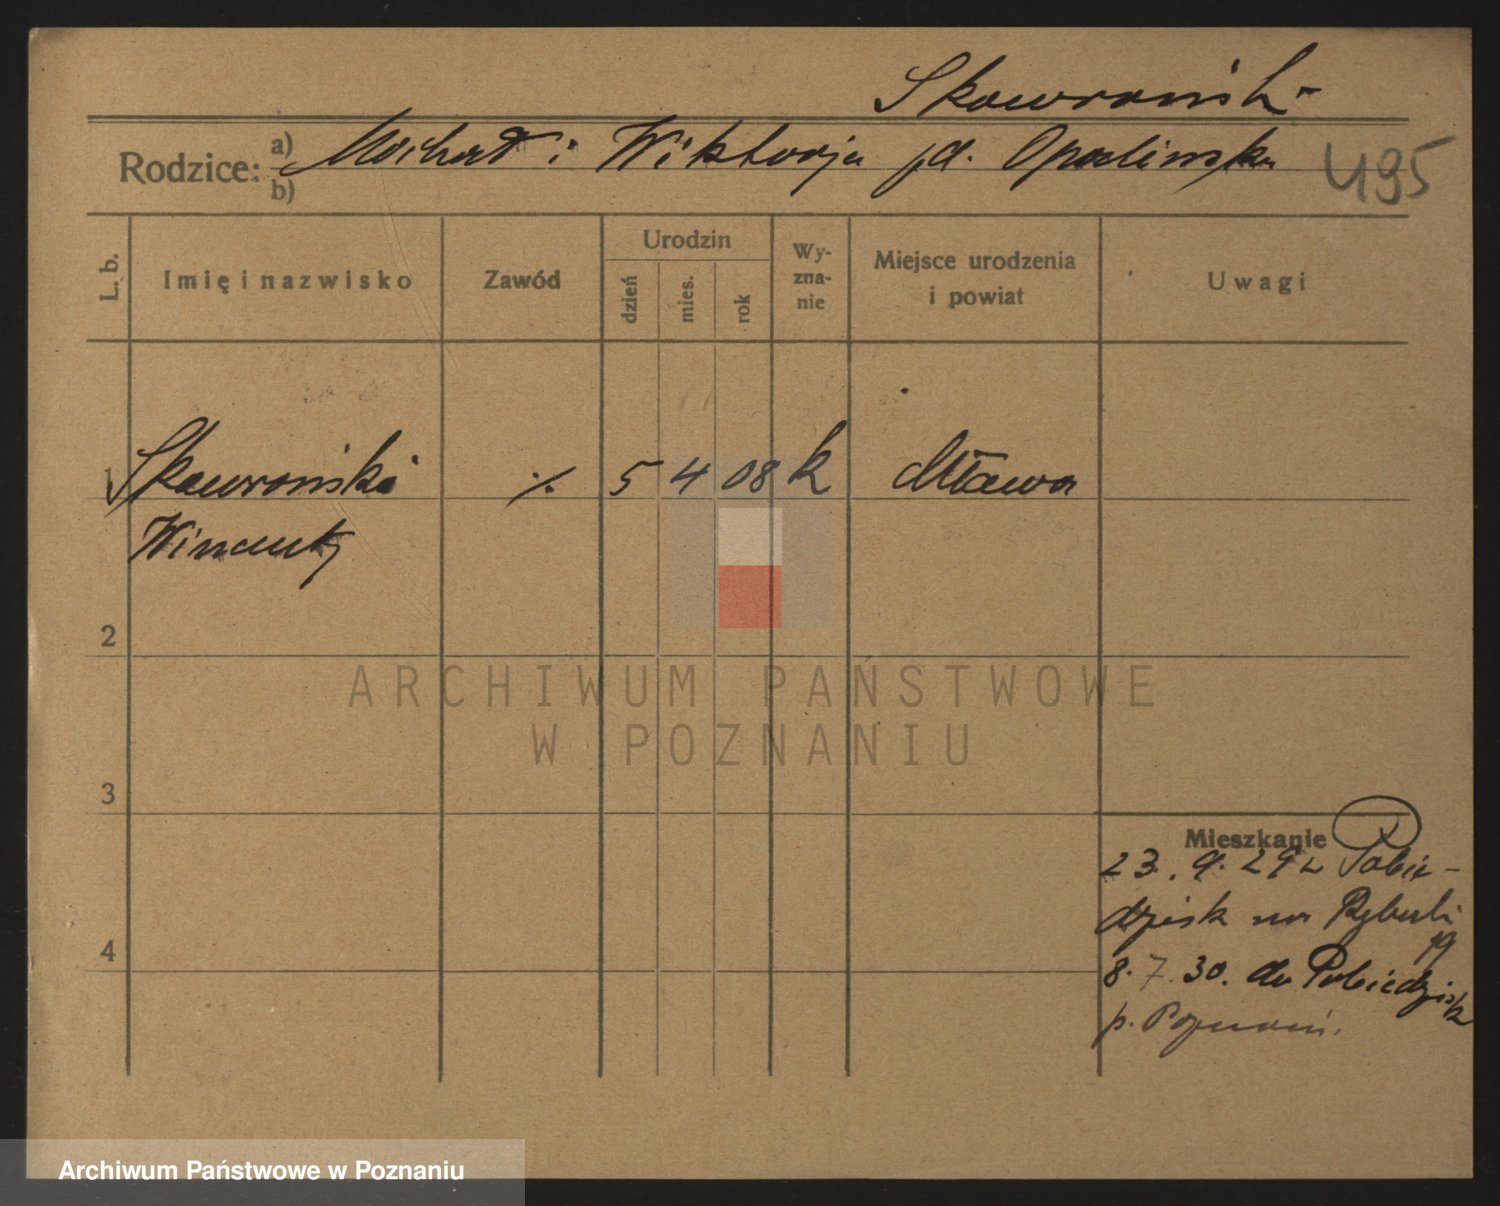 Skowroński
Rodzice: a) Michał i Wiktorja jd. Opalińska
b)
495
L. b.
Imię i nazwisko
Zawód
Urodzin
dzień
mies.
rok
Wy-
zna-
nie
Miejsce urodzenia
i powiat
Uwagi
1 Skowroński ./. 5 4 08 k Mława
Wincenty
2
3
4
Mieszkanie P
23. 9. 29 z Pobie-
dzisk na Rybaki
19
8. 7. 30. do Pobiedzisk
p. Poznań.
ARCHIWUM PAŃSTWOWE
W POZNANIU
Archiwum Państwowe w Poznaniu